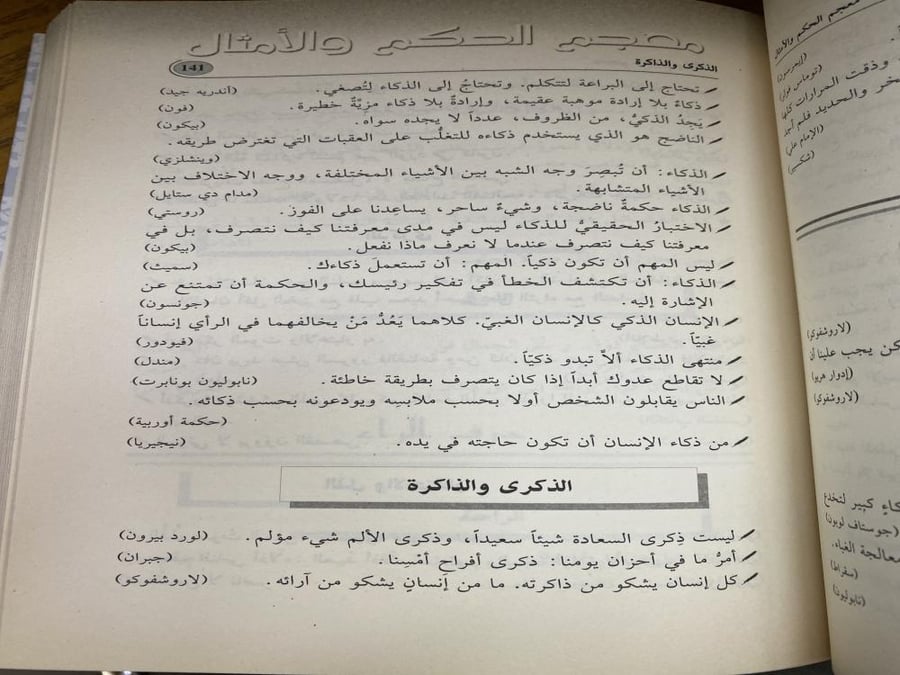 معجم الحكم والأمثال
الذكرى والذاكرة
141
تحتاج إلى البراعة لتتكلم. وتحتاجُ إلى الذكاء لتُصغي. (أندريه جيد)
ذكاءٌ بلا إرادة موهبة عقيمة، وإرادةٌ بلا ذكاء مزيّةٌ خطيرة. (فون)
يَجِدُ الذكيُّ، من الظروف، عدداً لا يجده سواه. (بيكون)
الناضج هو الذي يستخدم ذكاءه للتغلُّب على العقبات التي تعترض طريقه.
(وينشلزي)
الذكاء: أن تُبصِرَ وجه الشبه بين الأشياء المختلفة، ووجه الاختلاف بين
الأشياء المتشابهة. (مدام دي ستايل)
الذكاء حكمةٌ ناضجة، وشيءٌ ساحر، يساعدنا على الفوز. (روستي)
الاختبارُ الحقيقيُّ للذكاء ليس في مدى معرفتنا كيف نتصرف، بل في
معرفتنا كيف نتصرف عندما لا نعرف ماذا نفعل. (بيكون)
ليس المهم أن تكون ذكياً. المهم: أن تستعملَ ذكاءك. (سميث)
الذكاء: أن تكتشف الخطأ في تفكير رئيسك، والحكمة أن تمتنع عن
الإشارة إليه. (جونسون)
الإنسان الذكي كالإنسان الغبيّ. كلاهما يَعُدُّ مَنْ يخالفهما في الرأي إنساناً
غبيّاً. (فيودور)
منتهى الذكاء ألاّ تبدو ذكيّاً. (مندل)
لا تقاطع عدوك أبداً إذا كان يتصرف بطريقة خاطئة. (نابوليون بونابرت)
الناس يقابلون الشخص أولا بحسب ملابسِه ويودعونه بحسب ذكائه.
(حكمة أوربية)
من ذكاء الإنسان أن تكون حاجته في يده. (نيجيريا)
الذكرى والذاكرة
ليست ذِكرى السعادة شيئاً سعيداً، وذكرى الألم شيء مؤلم. (لورد بيرون)
أمرُّ ما في أحزان يومنا: ذكرى أفراحِ أمْسِنا. (جبران)
كل إنسان يشكو من ذاكرته. ما من إنسانٍ يشكو من آرائه. (لاروشفوكو)
معجم الحكم والأمثال
(إيمرسون)
وذقت المرارات كلها
(الإمام علي)
(لاروشفوكو)
كن يجب علينا أن
(إدوار هريو)
(لاروشفوكو)
كاءٍ كبير لتخدع
(جوستاف لوبون)
معالجة الغباء.
(سقراط)
(نابوليون)